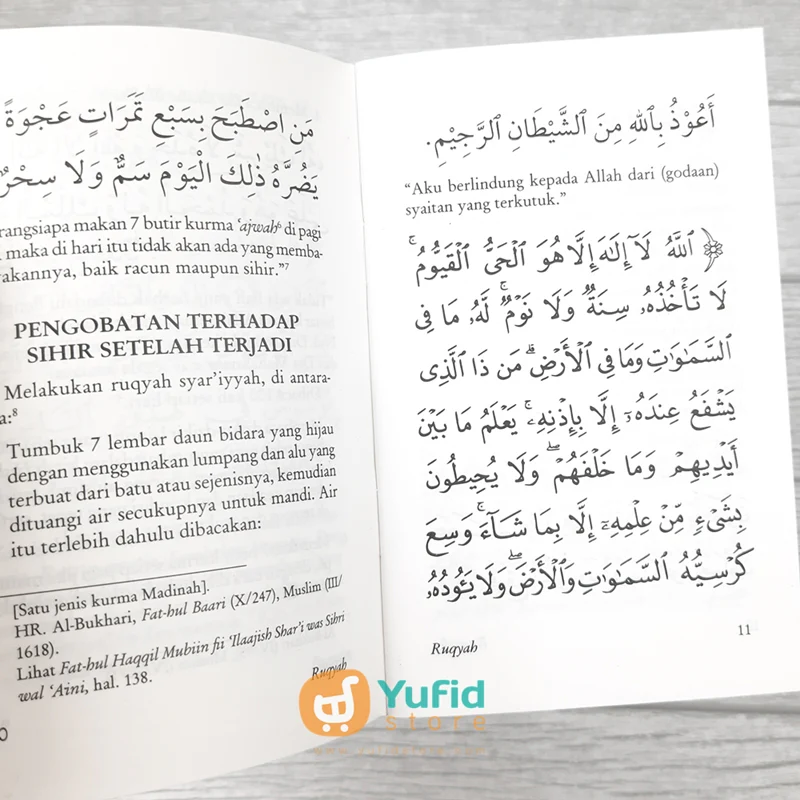 مَنِ اصْطَبَحَ بِسَبْعِ تَمَرَاتٍ عَجْوَةً
يَضُرَّهُ ذٰلِكَ الْيَوْمَ سَمٌّ وَلَا سِحْرٌ
rangsiapa makan 7 butir kurma ‘ajwah⁶ di pagi
maka di hari itu tidak akan ada yang memba-
rakannya, baik racun maupun sihir.”⁷
PENGOBATAN TERHADAP
SIHIR SETELAH TERJADI
Melakukan ruqyah syar’iyyah, di antara-
a:⁸
Tumbuk 7 lembar daun bidara yang hijau
dengan menggunakan lumpang dan alu yang
terbuat dari batu atau sejenisnya, kemudian
dituangi air secukupnya untuk mandi. Air
itu terlebih dahulu dibacakan:
[Satu jenis kurma Madinah].
HR. Al-Bukhari, Fat-hul Baari (X/247), Muslim (III/
1618).
Lihat Fat-hul Haqqil Mubiin fii ‘Ilaajish Shar’i was Sihri
wal ‘Aini, hal. 138.
Ruqyah
0
أَعُوْذُ بِٱللهِ مِنَ ٱلشَّيْطَانِ ٱلرَّجِيْمِ.
“Aku berlindung kepada Allah dari (godaan)
syaitan yang terkutuk.”
﴿ ٱللَّهُ لَآ إِلَٰهَ إِلَّا هُوَ ٱلْحَىُّ ٱلْقَيُّومُ ۚ
لَا تَأْخُذُهُۥ سِنَةٌ وَلَا نَوْمٌ ۚ لَّهُۥ مَا فِى
ٱلسَّمَٰوَٰتِ وَمَا فِى ٱلْأَرْضِ ۗ مَن ذَا ٱلَّذِى
يَشْفَعُ عِندَهُۥٓ إِلَّا بِإِذْنِهِۦ ۚ يَعْلَمُ مَا بَيْنَ
أَيْدِيهِمْ وَمَا خَلْفَهُمْ ۖ وَلَا يُحِيطُونَ
بِشَىْءٍ مِّنْ عِلْمِهِۦٓ إِلَّا بِمَا شَآءَ ۚ وَسِعَ
كُرْسِيُّهُ ٱلسَّمَٰوَٰتِ وَٱلْأَرْضَ ۖ وَلَا يَـُٔودُهُۥ
Ruqyah
11
Yufid
store